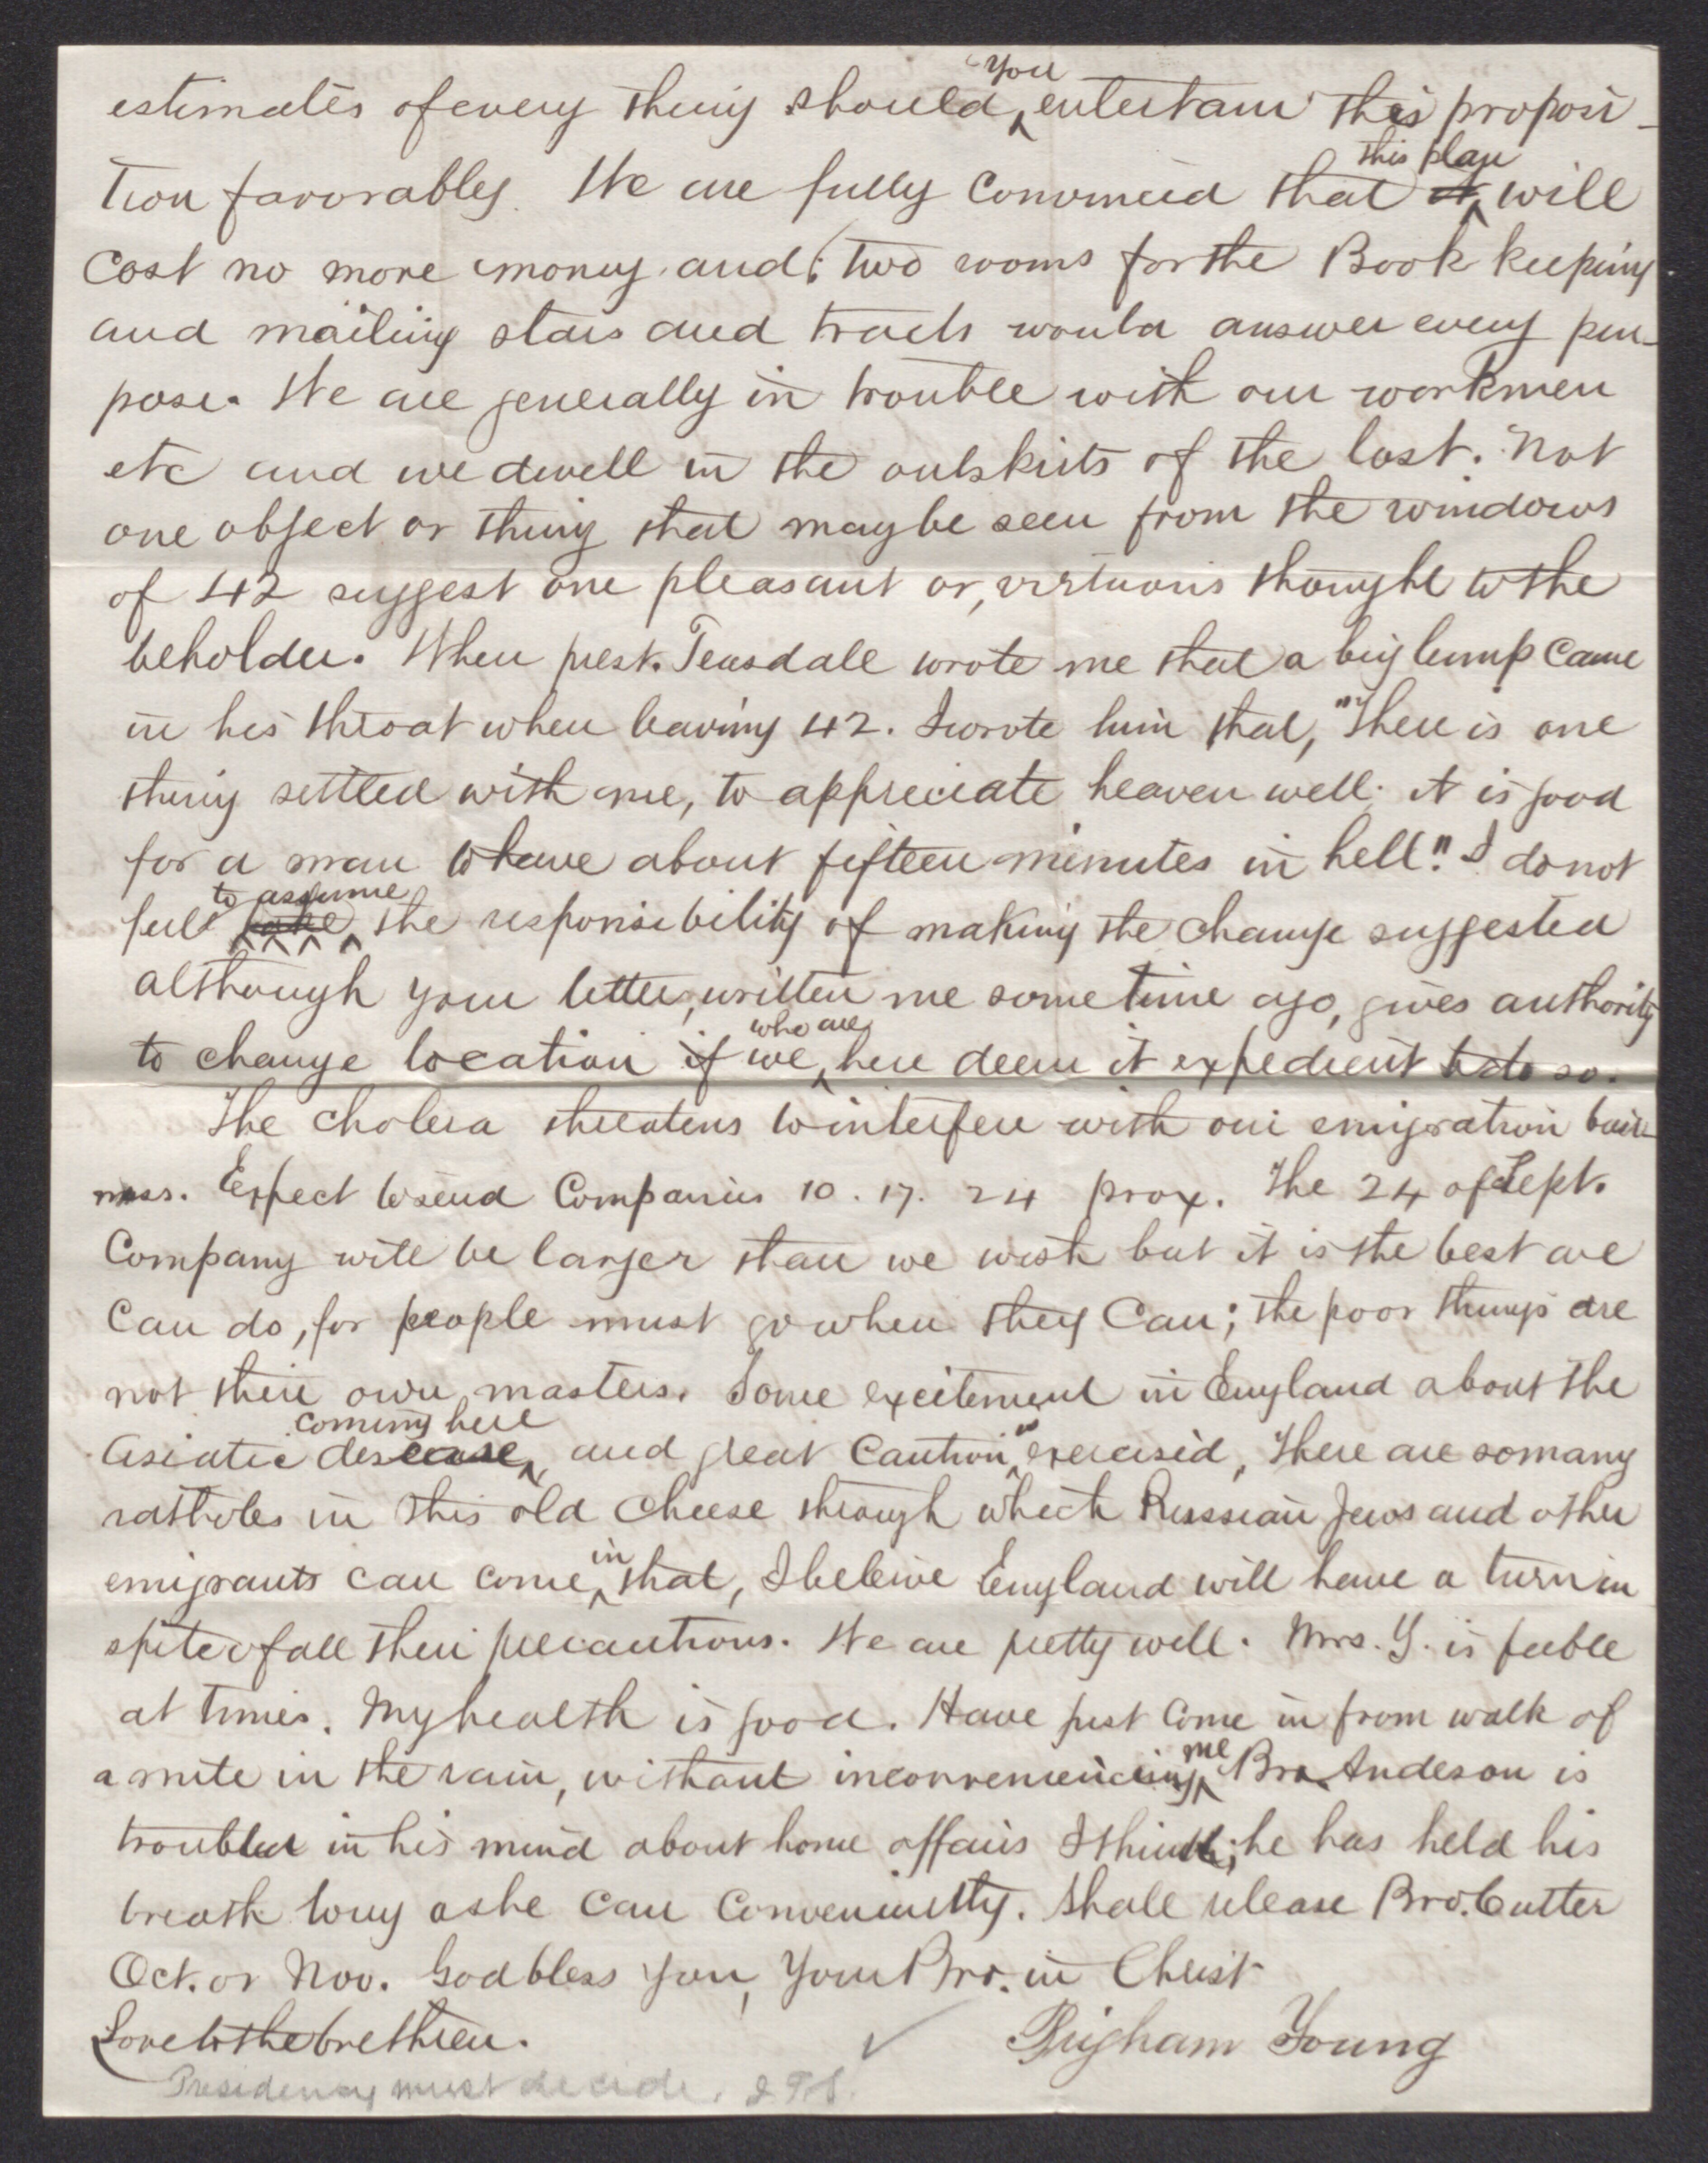 estimates of every thing should ^you entertain this proposi-
tion favorably. We are fully convinced that it ^this plan will
cost no more money and; two rooms for the Book keeping
and mailing stars and tracts would answer every pur-
pose. We are generally in trouble with our workmen
etc and we dwell in the outskirts of the lost. Not
one object or thing that may be seen from the windows
of 42 suggest one pleasant or, virtuous thought to the
beholder. When prest. Teasdale wrote me that a big lump came
in his throat when leaving 42. I wrote him that, "There is one
thing settled with me, to appreciate heaven well; it is good
for a man to have about fifteen minutes in hell." I do not
feel take ^to assume the responsibility of making the change suggested
although your letter, written me some time ago, gives authority
to change location if we ^who are here deem it expedient to do so.
The cholera threatens to interfere with our emigration busi-
ness. Expect to send Companies 10. 17. 24 prox. The 24 of Sept.
Company will be larger than we wish but it is the best we
can do, for people must go when they can; the poor things are
not their own masters. Some excitement in England about the
Asiatic desease ^coming here and great caution ^is exercised, There are so many
ratholes in this old cheese through which Russian Jews and other
emigrants can come ^in that, I beleive England will have a turn in
spite of all their precautions. We are pretty well. Mrs. Y. is feeble
at times. My health is good. Have just come in from walk of
a mile in the rain, without inconveniencing ^me Bro. Anderson is
troubled in his mind about home affairs I think; he has held his
breath long as he can conveniently. Shall release Bro. Cutler
Oct. or Nov. God bless you, Your Bro. in Christ
Love to the brethren. Brigham Young
Presidency must decide. J.F.S.